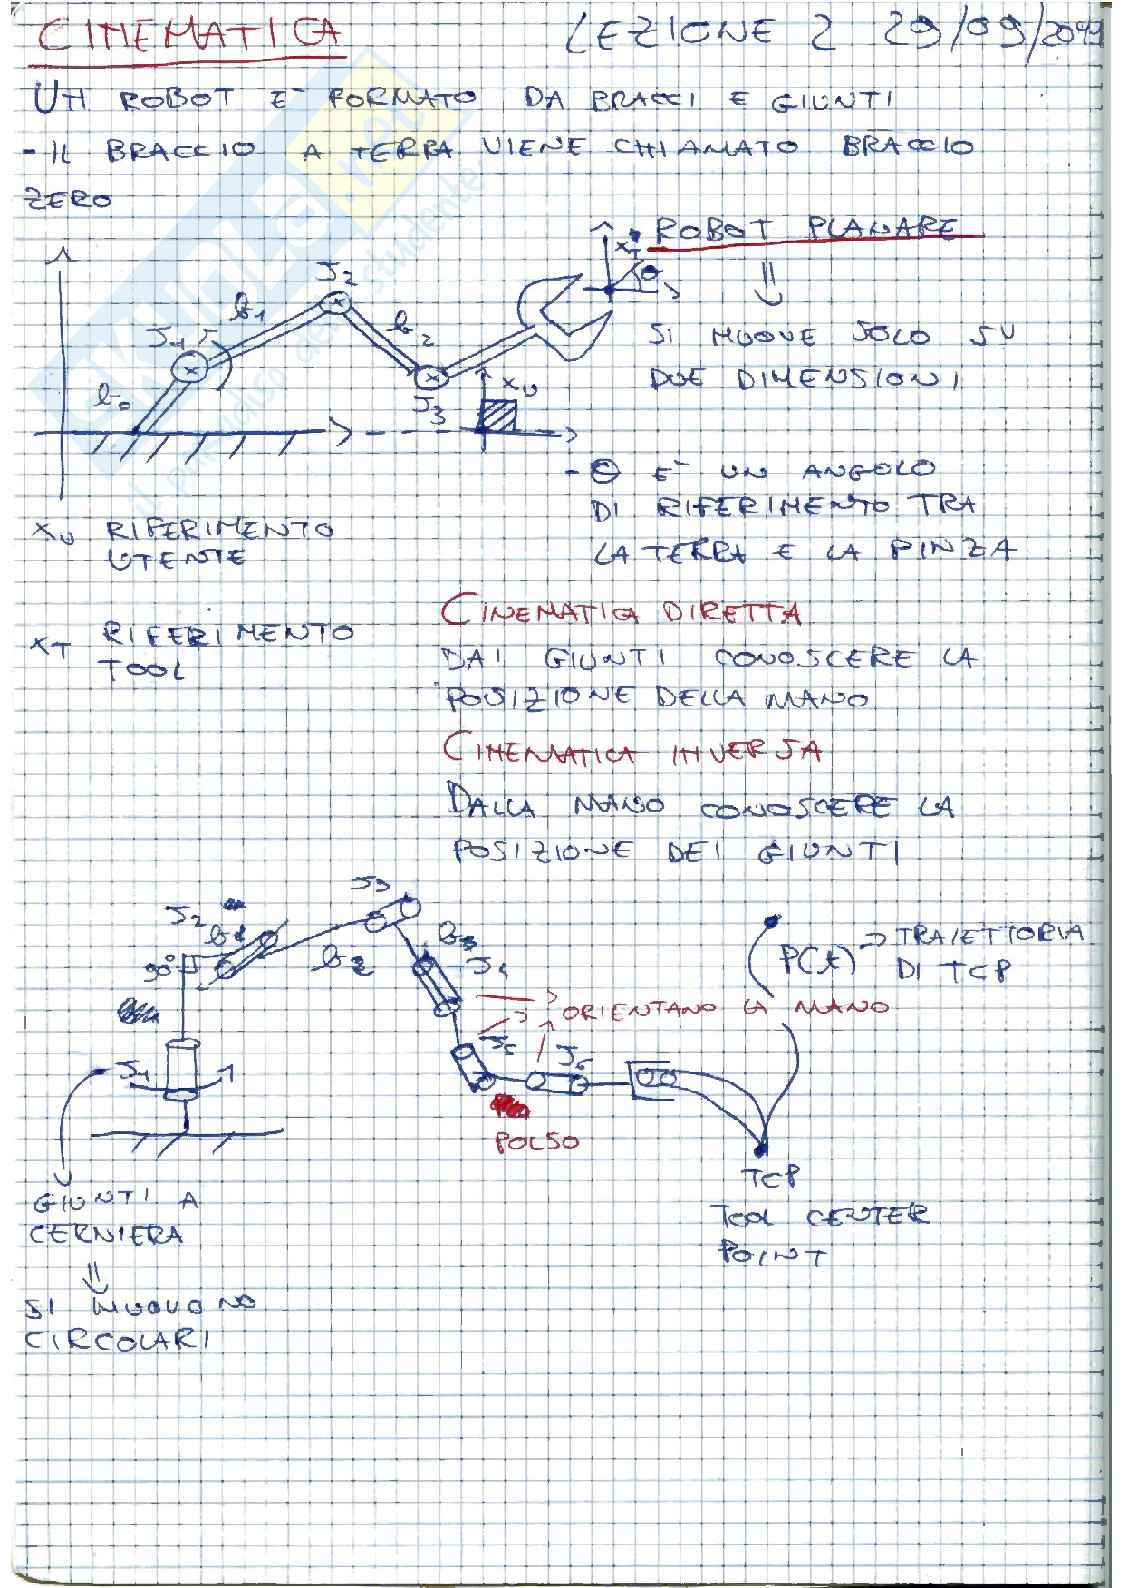 CINEMATICA LEZIONE 2 29/09/20
UN ROBOT E' FORMATO DA BRACCI E GIUNTI
- IL BRACCIO A TERRA VIENE CHIAMATO BRACCIO
ZERO
ROBOT PLANARE
SI MUOVE SOLO SU
DUE DIMENSIONI
J1
J2
J3
b0
b1
b2
XU
XT
θ
- θ E' UN ANGOLO
DI RIFERIMENTO TRA
LA TERRA E LA PINZA
XU RIFERIMENTO
UTENTE
XT RIFERIMENTO
TOOL
CINEMATICA DIRETTA
DAI GIUNTI CONOSCERE LA
POSIZIONE DELLA MANO
CINEMATICA INVERSA
DALLA MANO CONOSCERE LA
POSIZIONE DEI GIUNTI
J3
J2
b1
b2
b3
J4
90°
P(t) → TRAIETTORIA
DI TCP
ORIENTANO LA MANO
J1
J5
J6
POLSO
TCP
TOOL CENTER
POINT
GIUNTI A
CERNIERA
SI MUOVONO
CIRCOLARI